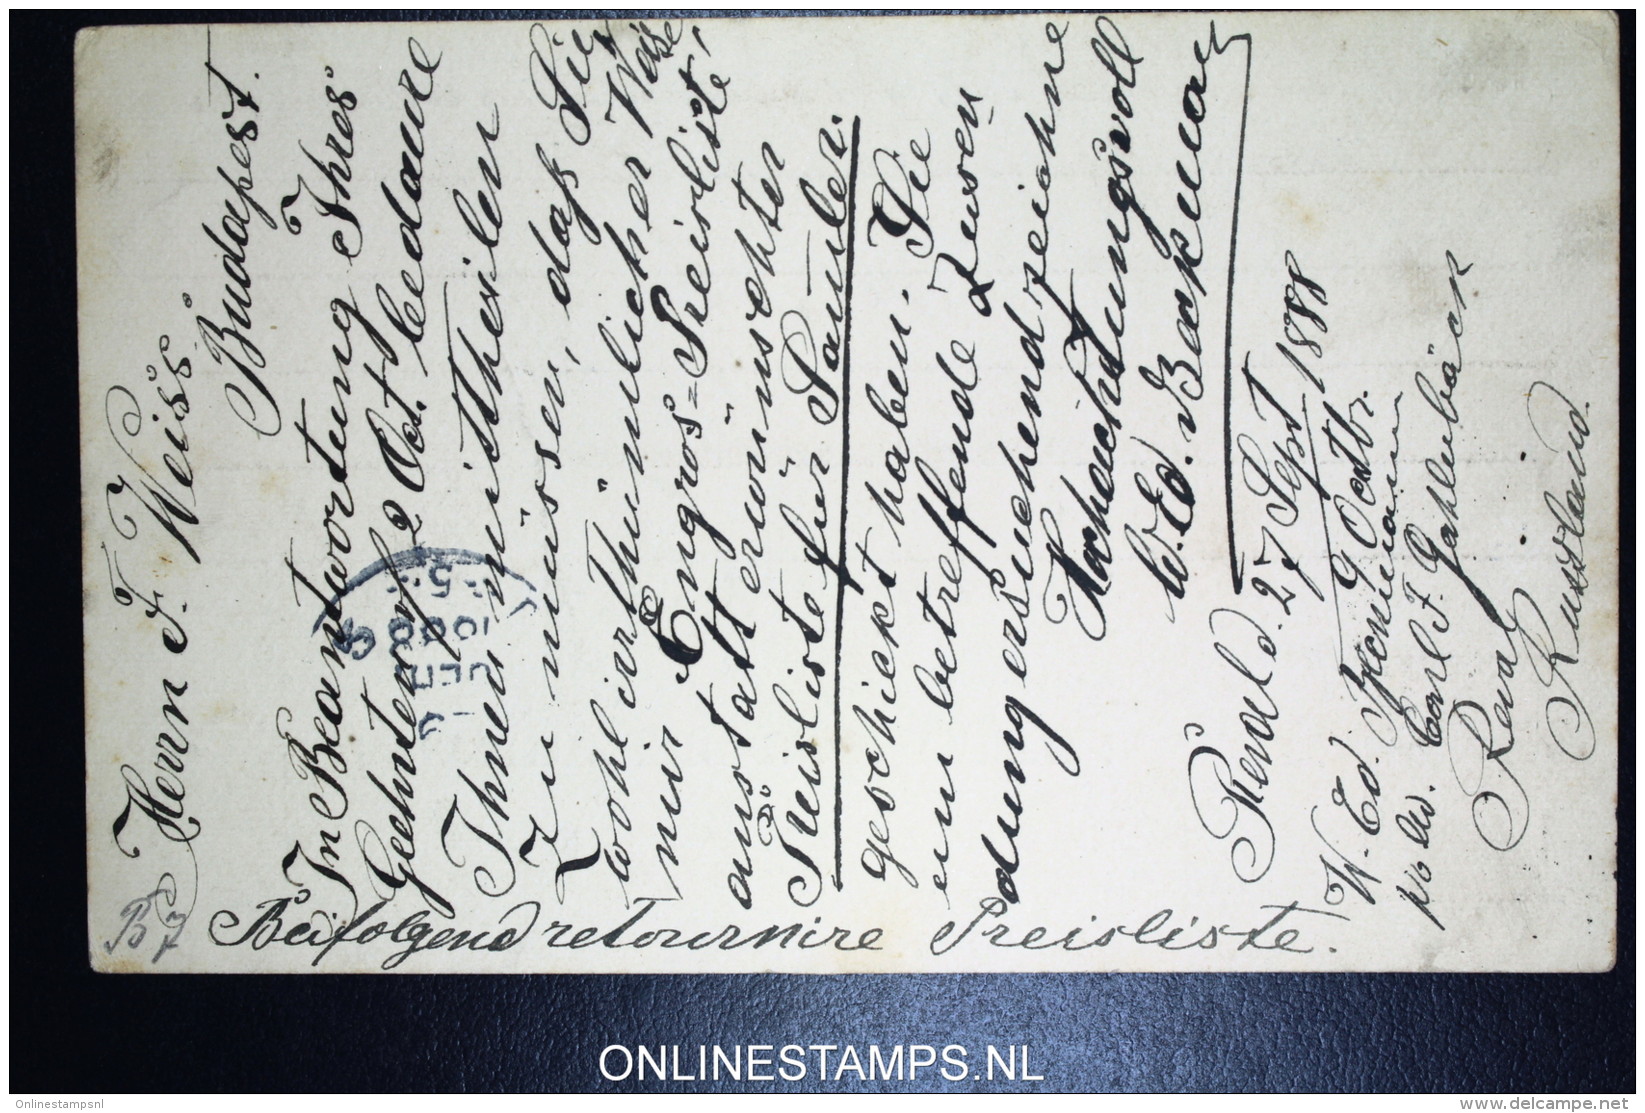 Herrn F. Weiss.
Budapest.
In Beantwortung Ihres
Geehrten v/ 2 Oct. bedaure
Ihnen mittheilen
zu müssen, daß Sie
wohl irrthümlicher Weise
mir Engros=Preisliste,
anstatt erwünschter
Preisliste für Samler.
geschickt haben. Sie
um betreffende Zusen
dung ersuchend zeichne
Hochachtungsvoll
W. Ed. Backman
Reval d. 27 Sept 1888
9 Octbr.
W. Ed.
p/o Ad. Carl F. Gahlnbäck
Reval.
Russland.
Beifolgend retournire Preisliste.
B 7
ONLINESTAMPS.NL
Onlinestampsnl
www.delcampe.net